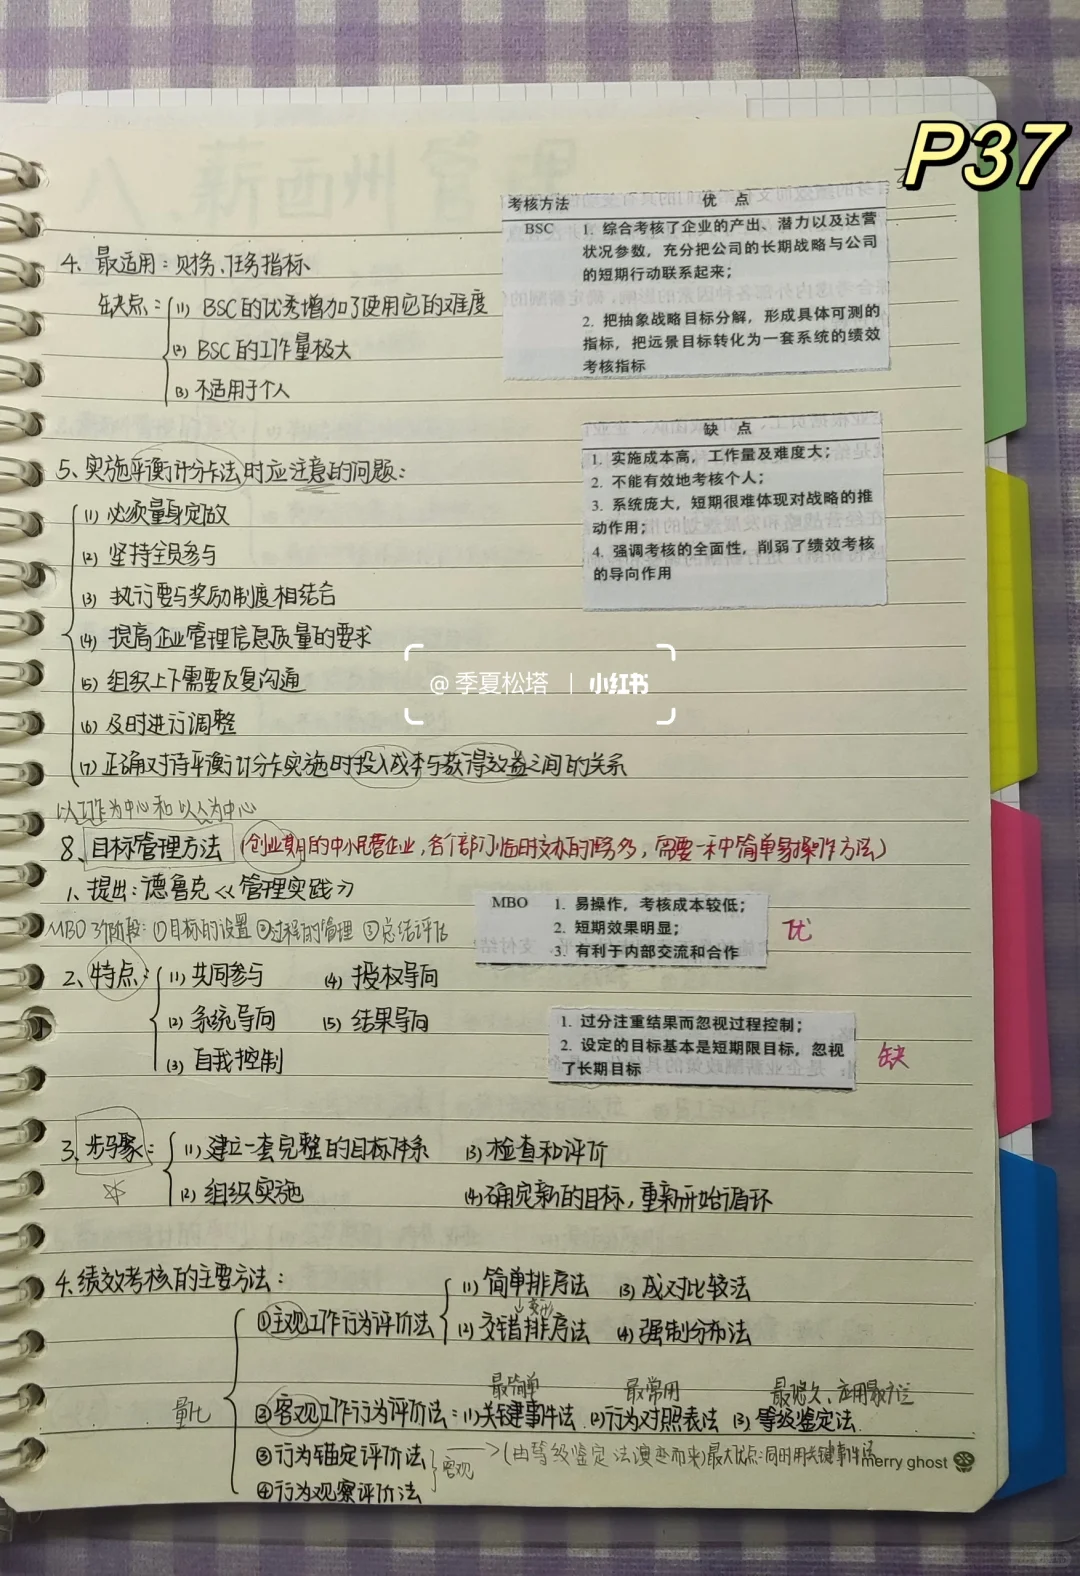 P37
考核方法 优 点
BSC 1. 综合考核了企业的产出、潜力以及达营
状况参数，充分把公司的长期战略与公司
的短期行动联系起来；
2. 把抽象战略目标分解，形成具体可测的
指标，把远景目标转化为一套系统的绩效
考核指标
4. 最适用：财务、任务指标
缺点：(1) BSC的优秀增加了使用它的难度
(2) BSC的工作量极大
(3) 不适用于个人
缺 点
1. 实施成本高，工作量及难度大；
2. 不能有效地考核个人；
3. 系统庞大，短期很难体现对战略的推
动作用；
4. 强调考核的全面性，削弱了绩效考核
的导向作用
5、实施平衡计分卡法时应注意的问题：
(1) 必须量身定做
(2) 坚持全员参与
(3) 执行要与奖励制度相结合
(4) 提高企业管理信息质量的要求
(5) 组织上下需要反复沟通
(6) 及时进行调整
(7) 正确对待平衡计分卡实施时投入成本与获得效益之间的关系
@季夏松塔 | 小红书
以工作为中心和以人为中心
8、目标管理方法 (创业期的中小民营企业，各个部门临时交办的任务多，需要一种简单易操作方法)
1. 提出：德鲁克《管理实践》
MBO 1. 易操作，考核成本较低；
2. 短期效果明显；
3. 有利于内部交流和合作
优
MBO 3个阶段：①目标的设置 ②过程的管理 ③总结评估
2、特点：(1) 共同参与 (4) 授权导向
(2) 系统导向 (5) 结果导向
(3) 自我控制
1. 过分注重结果而忽视过程控制；
2. 设定的目标基本是短期限目标，忽视
了长期目标
缺
3、步骤：(1) 建立一套完整的目标体系 (3) 检查和评价
(2) 组织实施 (4) 确定新的目标，重新开始循环
4. 绩效考核的主要方法：
①主观工作行为评价法 (1) 简单排序法 (3) 成对比较法
↓变形
(2) 交错排序法 (4) 强制分布法
量化
最简单 最常用 最悠久、应用最广泛
②客观工作行为评价法：(1) 关键事件法 (2) 行为对照表法 (3) 等级鉴定法
③行为锚定评价法 客观 →(由等级鉴定法演变而来)最大优点：同时用关键事件法
④行为观察评价法
merry ghost